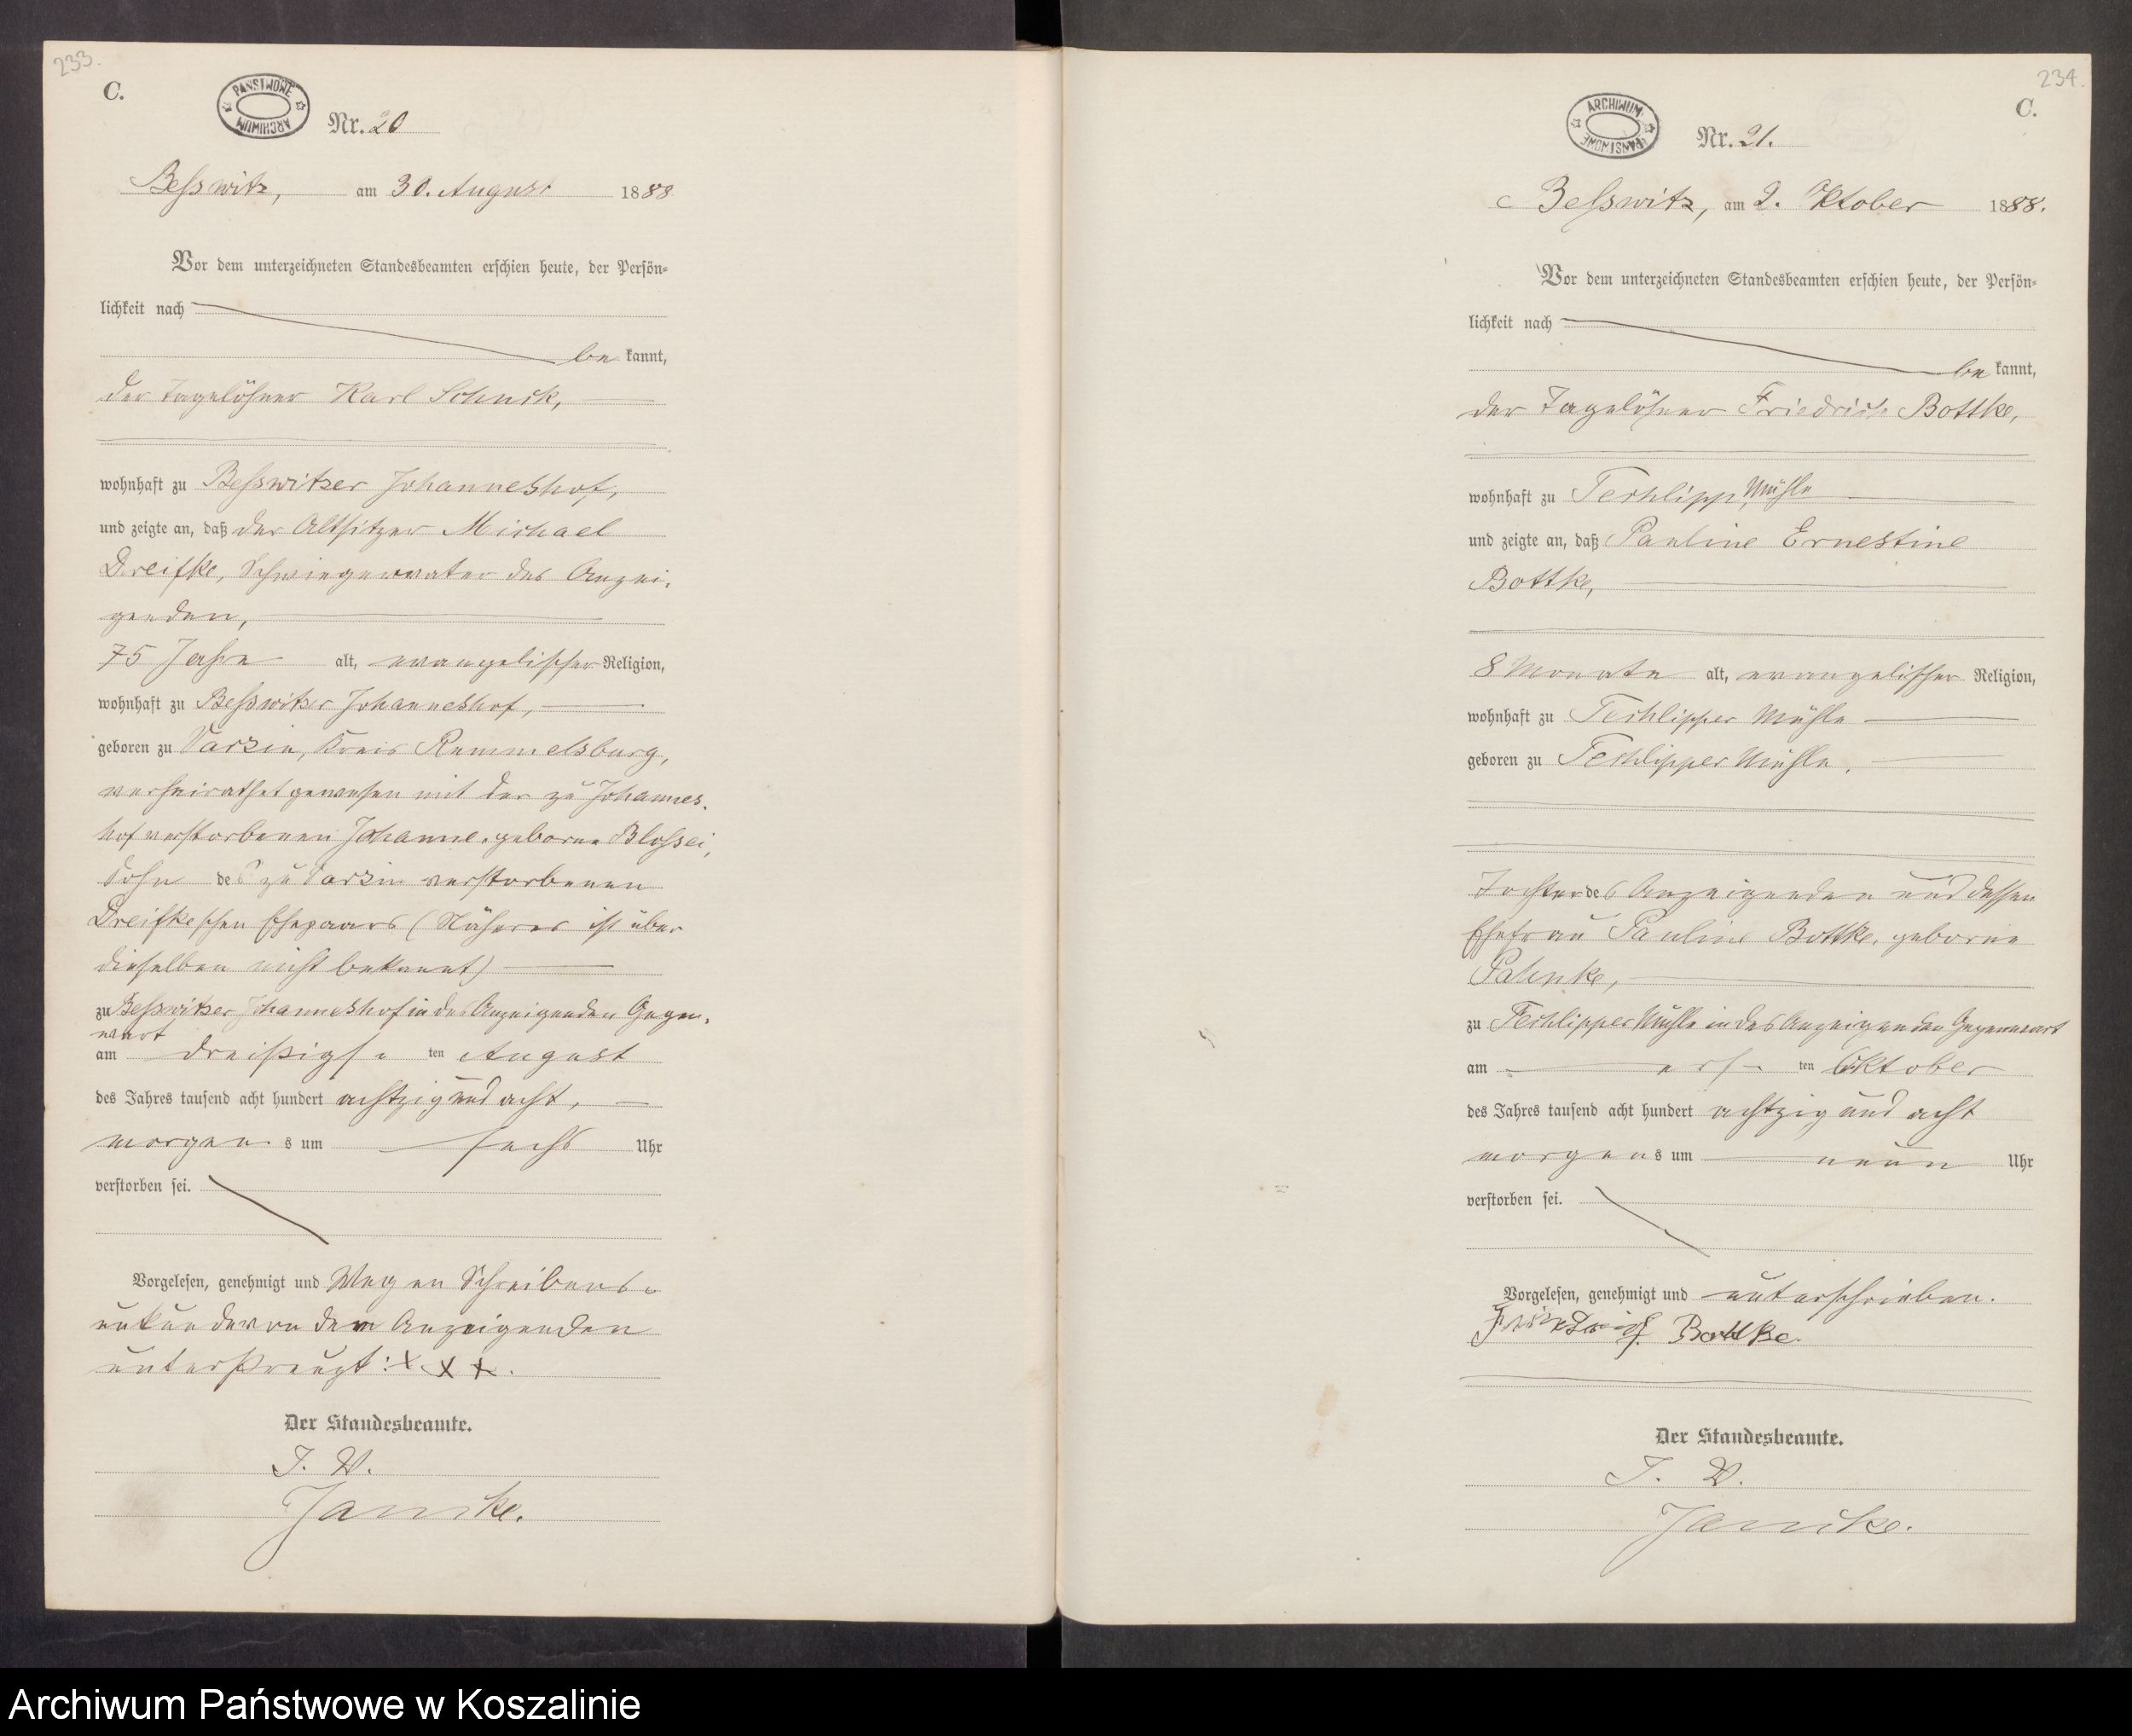 233.
C.
PAŃSTWOWE ARCHIWUM
Nr. 20
Beßwitz, am 30. August 1888
Vor dem unterzeichneten Standesbeamten erschien heute, der Persön=
lichkeit nach
be kannt,
der Tagelöhner Karl Schuck,
wohnhaft zu Beßwitzer Johanneshof,
und zeigte an, daß der Altsitzer Michael
Dreifke, Schwiegervater des Anzei-
genden,
75 Jahre alt, evangelischer Religion,
wohnhaft zu Beßwitzer Johanneshof,
geboren zu Varzin, Kreis Rummelsburg,
verheirathet gewesen mit der zu Johannes-
hof verstorbenen Johanne, geborne Bloßei,
Sohn des zu Varzin verstorbenen
Dreifkeschen Ehepaars (Näheres ist über
dieselben nicht bekannt)
zu Beßwitzer Johanneshof in des Anzeigenden Gegen-
wart
am dreißigsten August
des Jahres tausend acht hundert achtzig und acht,
morgens um sechs Uhr
verstorben sei.
Vorgelesen, genehmigt und Wegen Schreibens-
unkunde von dem Anzeigenden
unterkreuzt: x x x.
Der Standesbeamte.
J. V.
Jancke.
234.
C.
ARCHIWUM PAŃSTWOWE
Nr. 21.
Beßwitz, am 2. Oktober 1888.
Vor dem unterzeichneten Standesbeamten erschien heute, der Persön=
lichkeit nach
be kannt,
der Tagelöhner Friedrich Bottke,
wohnhaft zu Techlipp, Mühle
und zeigte an, daß Pauline Ernestine
Bottke,
8 Monate alt, evangelischer Religion,
wohnhaft zu Techlipper Mühle
geboren zu Techlipper Mühle,
Tochter des Anzeigenden und dessen
Ehefrau Pauline Bottke, geborne
Pahnke,
zu Techlipper Mühle in des Anzeigenden Gegenwart
am ersten Oktober
des Jahres tausend acht hundert achtzig und acht
morgens um neun Uhr
verstorben sei.
Vorgelesen, genehmigt und unterschrieben.
Friedrich Bottke.
Der Standesbeamte.
J. V.
Jancke.
Archiwum Państwowe w Koszalinie